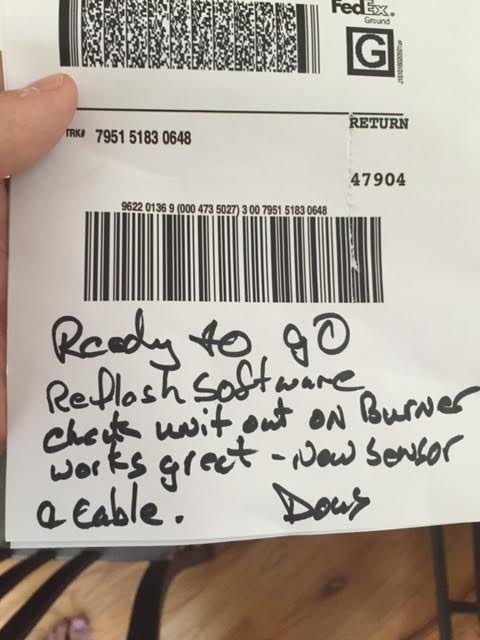 FedEx.
Ground
G
TRK# 7951 5183 0648
RETURN
47904
9622 0136 9 (000 473 5027) 3 00 7951 5183 0648
Ready to go
Reflash Software
check unit out on Burner
works great - New Sensor
a Cable.
Doug